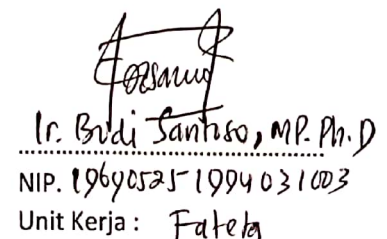 Ir. Budi Santoso, MP. Ph.D
NIP. 19690525 1994 031003
Unit Kerja : Fateta